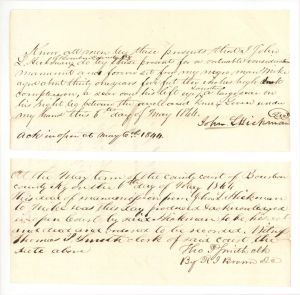 Know all men by these presents that I John
L Hickman do by these presents for a valuable consideration
manumit and forever set free my negro man Mike
aged about thirty six years five feet ten inches high
complexion, a scar over his left eye & a large scar on
his right leg between the ankle and knee. Given under
my hand this 6th day of May 1844.
John L Hickman
Ack in open ct May 6th 1844.
At the May term of the county court of Bourbon
county Ky on the 6th day of May 1844
This deed of manumission from John L Hickman
to Mike was this day produced & acknowledged
in open Court by said Hickman to be his act
and deed and ordered to be recorded. Witness
Thomas P Smith clerk of said court the
date above
Tho P Smith clk
By